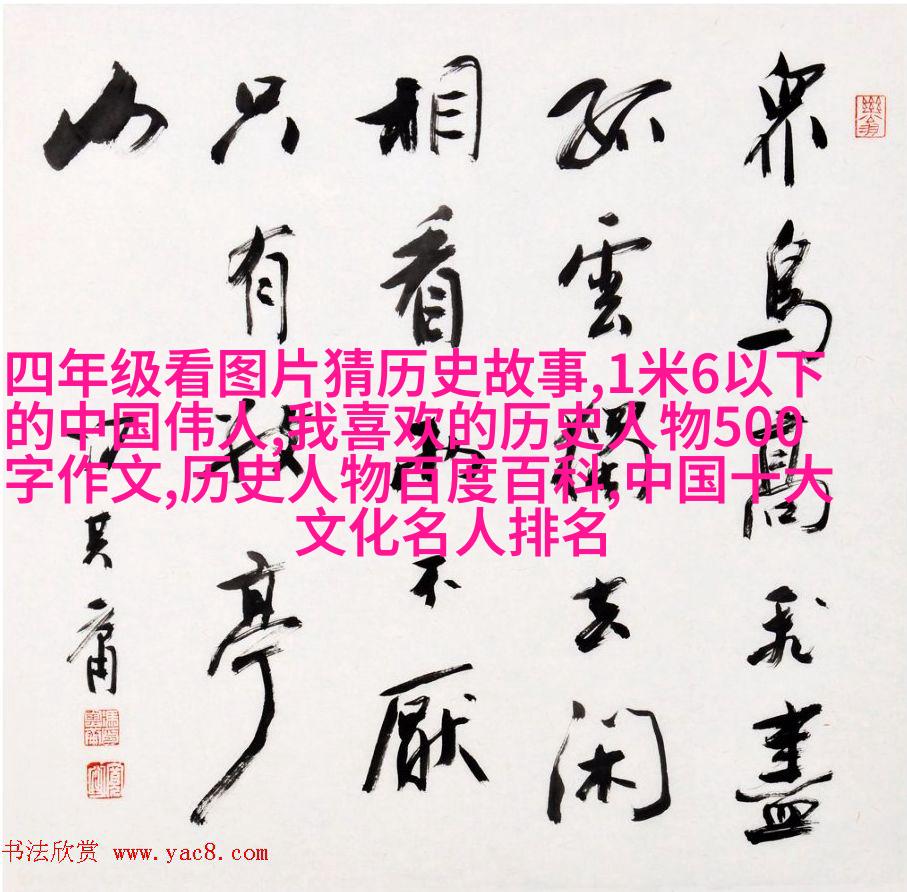 眾鳥高飛盡
孤雲獨去閑
相看兩不厭
只有敬亭
山
馮其庸
四年级看图片猜历史故事,1米6以下
的中国伟人,我喜欢的历史人物500
字作文,历史人物百度百科,中国十大
文化名人排名
书法欣赏 www.yac8.com